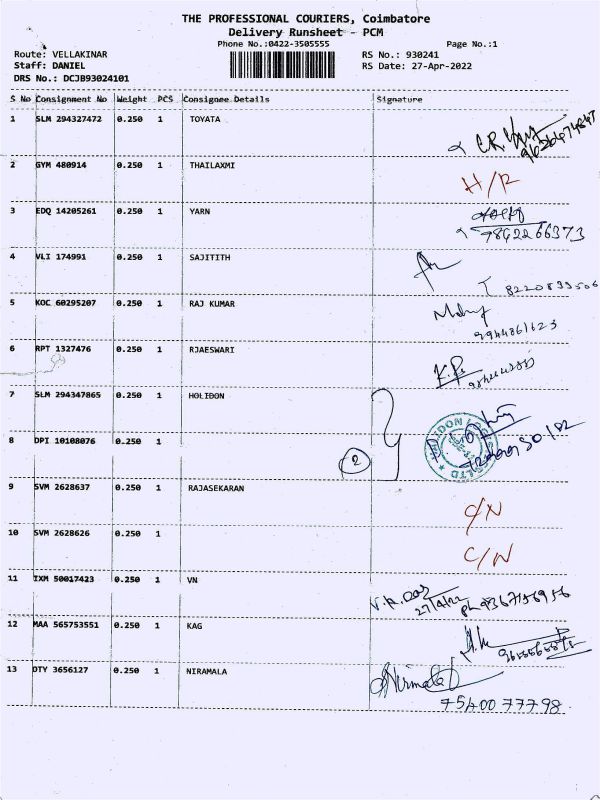 THE PROFESSIONAL COURIERS, Coimbatore
Delivery Runsheet - PCM
Phone No.:0422-3505555 Page No.:1
Route: VELLAKINAR RS No.: 930241
Staff: DANIEL RS Date: 27-Apr-2022
DRS No.: DCJB93024101
S No Consignment No Weight PCS Consignee Details Signature
1 SLM 294327472 0.250 1 TOYATA
2 GYM 480914 0.250 1 THAILAXMI H/R
3 EDQ 14205261 0.250 1 YARN
7842266373
4 VLI 174991 0.250 1 SAJITITH
5 KOC 60295207 0.250 1 RAJ KUMAR
9944861623
6 RPT 1327476 0.250 1 RJAESWARI K.P.
7 SLM 294347865 0.250 1 HOLIDON
8 DPI 10108076 0.250 1 2
9 SVM 2628637 0.250 1 RAJASEKARAN C/N
10 SVM 2628626 0.250 1 C/N
11 IXM 50017423 0.250 1 VN
27/4/22
12 MAA 565753551 0.250 1 KAG
13 DTY 3656127 0.250 1 NIRAMALA Nirmala
75400 77798